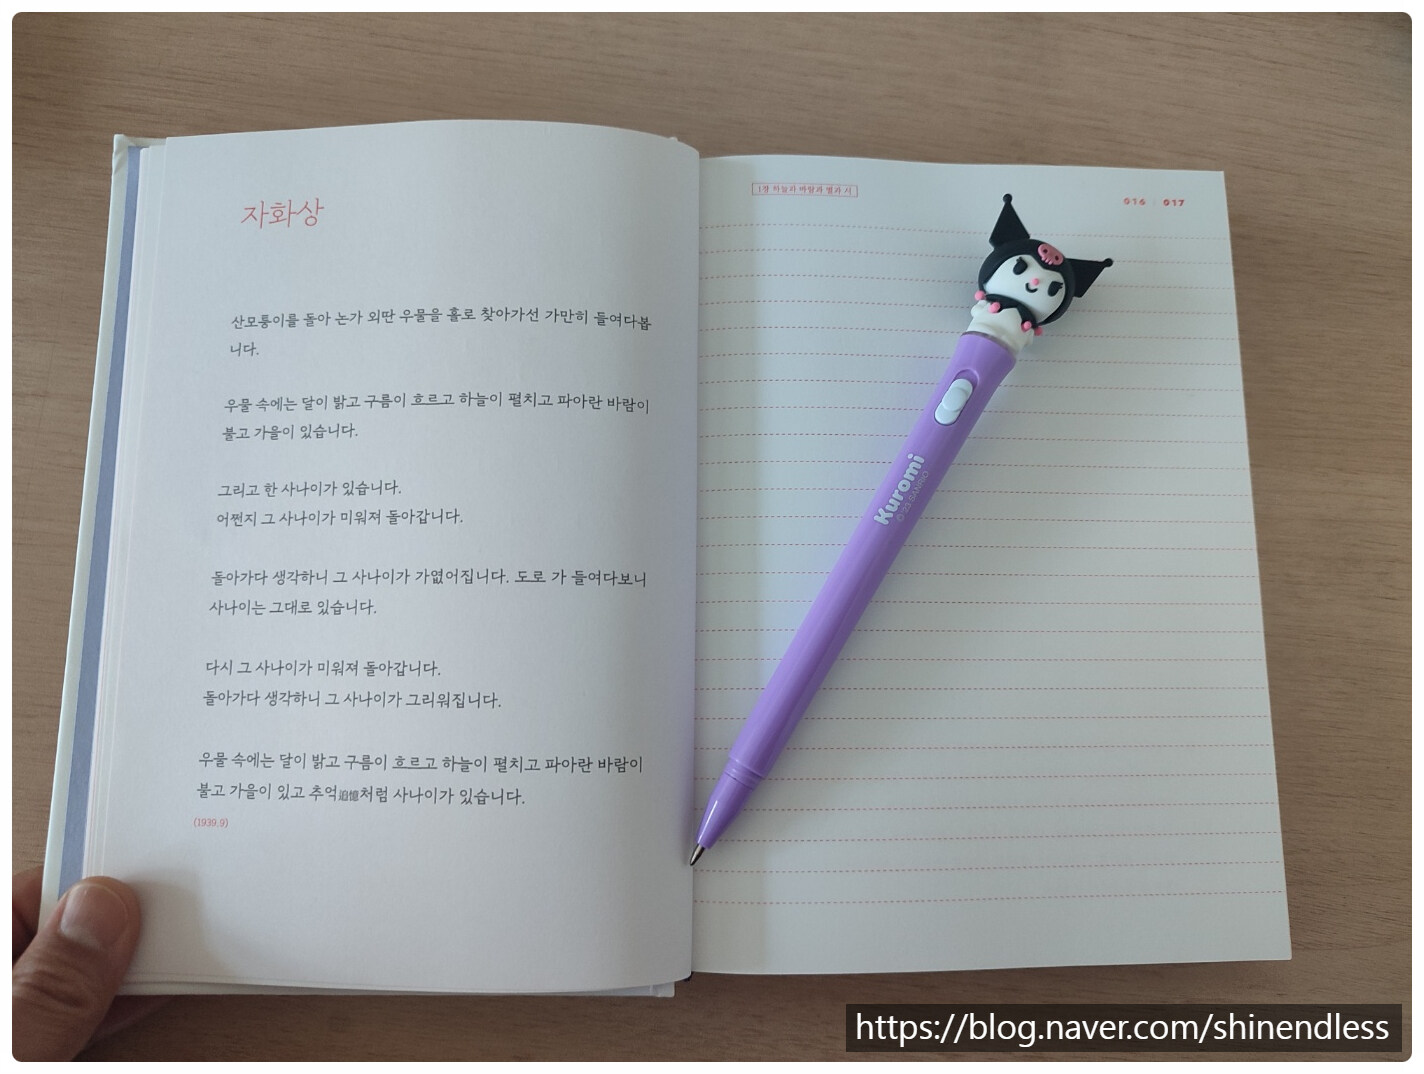 자화상
산모퉁이를 돌아 논가 외딴 우물을 홀로 찾아가선 가만히 들여다봅
니다.
우물 속에는 달이 밝고 구름이 흐르고 하늘이 펼치고 파아란 바람이
불고 가을이 있습니다.
그리고 한 사나이가 있습니다.
어쩐지 그 사나이가 미워져 돌아갑니다.
돌아가다 생각하니 그 사나이가 가엾어집니다. 도로 가 들여다보니
사나이는 그대로 있습니다.
다시 그 사나이가 미워져 돌아갑니다.
돌아가다 생각하니 그 사나이가 그리워집니다.
우물 속에는 달이 밝고 구름이 흐르고 하늘이 펼치고 파아란 바람이
불고 가을이 있고 추억追憶처럼 사나이가 있습니다.
(1939.9)
1장 하늘과 바람과 별과 시
016 : 017
Kuromi
© '23 SANRIO
https://blog.naver.com/shinendless